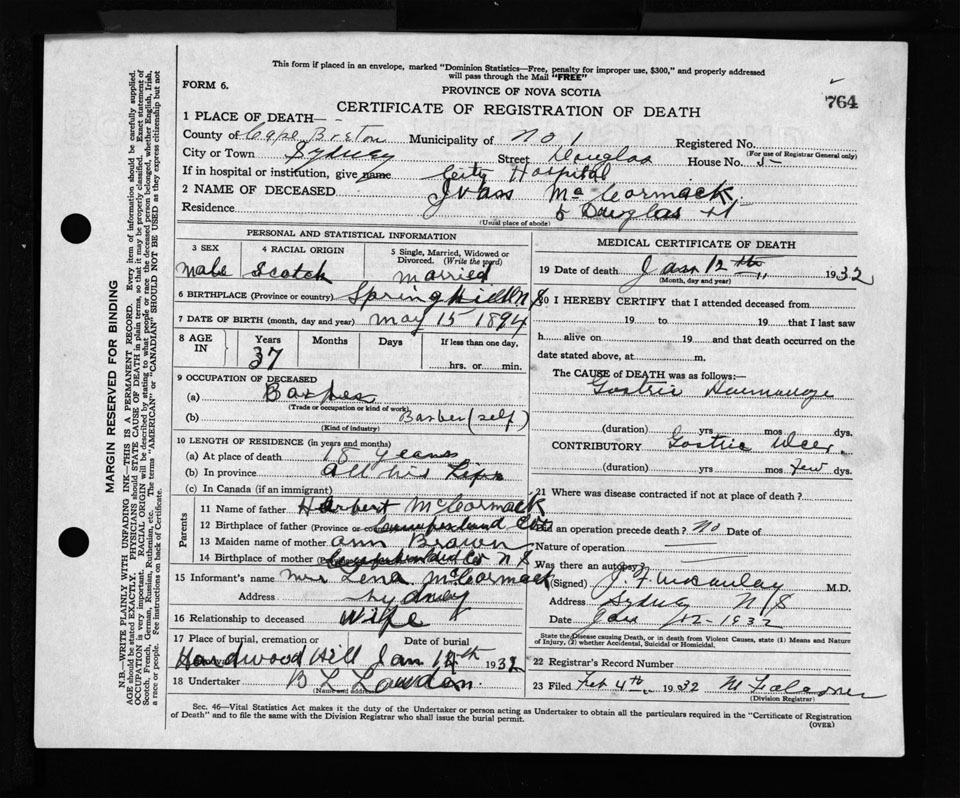 This form if placed in an envelope, marked "Dominion Statistics—Free, penalty for improper use, $300," and properly addressed
will pass through the Mail "FREE"
FORM 6.
PROVINCE OF NOVA SCOTIA
764
CERTIFICATE OF REGISTRATION OF DEATH
1 PLACE OF DEATH—
County of Cape Breton Municipality of No 1 Registered No.
(For use of Registrar General only)
City or Town Sydney Street Douglas House No. 5
If in hospital or institution, give name City Hospital
2 NAME OF DECEASED McCormack
Residence 5 Douglas St
(Usual place of abode)
PERSONAL AND STATISTICAL INFORMATION
3 SEX 4 RACIAL ORIGIN 5 Single, Married, Widowed or
Divorced. (Write the word)
Male Scotch Married
6 BIRTHPLACE (Province or country) Spring Hill N S
7 DATE OF BIRTH (month, day and year) May 15 1894
8 AGE IN Years Months Days If less than one day,
37 hrs. or min.
9 OCCUPATION OF DECEASED
(a) Barber
(Trade or occupation or kind of work)
(b) Barber (self)
(Kind of industry)
10 LENGTH OF RESIDENCE (in years and months)
(a) At place of death 18 years
(b) In province All his Life
(c) In Canada (if an immigrant)
Parents
11 Name of father Herbert McCormack
12 Birthplace of father (Province or Cumberland Co
13 Maiden name of mother Ann Brown
14 Birthplace of mother Cumberland Co N S
15 Informant's name Mrs Lena McCormack
Address Sydney
16 Relationship to deceased Wife
17 Place of burial, cremation or Date of burial
Hardwood Hill Jan 14th 1932
18 Undertaker
(Name and address)
MEDICAL CERTIFICATE OF DEATH
19 Date of death Jan 12th 1932
(Month, day and year)
20 I HEREBY CERTIFY that I attended deceased from
19 to 19 that I last saw
h alive on 19 and that death occurred on the
date stated above, at m.
The CAUSE of DEATH was as follows:—
Gastric Haemorrhage
(duration) yrs mos dys.
CONTRIBUTORY Gastric Ulcer
(duration) yrs mos Few dys.
21 Where was disease contracted if not at place of death?
Did an operation precede death? No Date of
Nature of operation
Was there an autopsy?
(Signed) M.D.
Address Sydney N S
Date Jan 12-1932
State the Disease causing Death, or in death from Violent Causes, state (1) Means and Nature
of Injury, (2) whether Accidental, Suicidal or Homicidal.
22 Registrar's Record Number
23 Filed Feb 4th 1932
(Division Registrar)
Sec. 46—Vital Statistics Act makes it the duty of the Undertaker or person acting as Undertaker to obtain all the particulars required in the "Certificate of Registration
of Death" and to file the same with the Division Registrar who shall issue the burial permit.
(OVER)
MARGIN RESERVED FOR BINDING
N.B.—WRITE PLAINLY WITH UNFADING INK—THIS IS A PERMANENT RECORD. Every item of information should be carefully supplied.
AGE should be stated EXACTLY. PHYSICIANS should STATE CAUSE OF DEATH in plain terms, so that it may be properly classified. Exact statement of
OCCUPATION is very important. RACIAL ORIGIN will be described by stating to what people or race the deceased person belonged, whether English, Irish,
Scotch, French, German, Russian, Ruthenian, etc. The terms "AMERICAN" or "CANADIAN" SHOULD NOT BE USED as they express citizenship but not
a race or people. See instructions on back of Certificate.